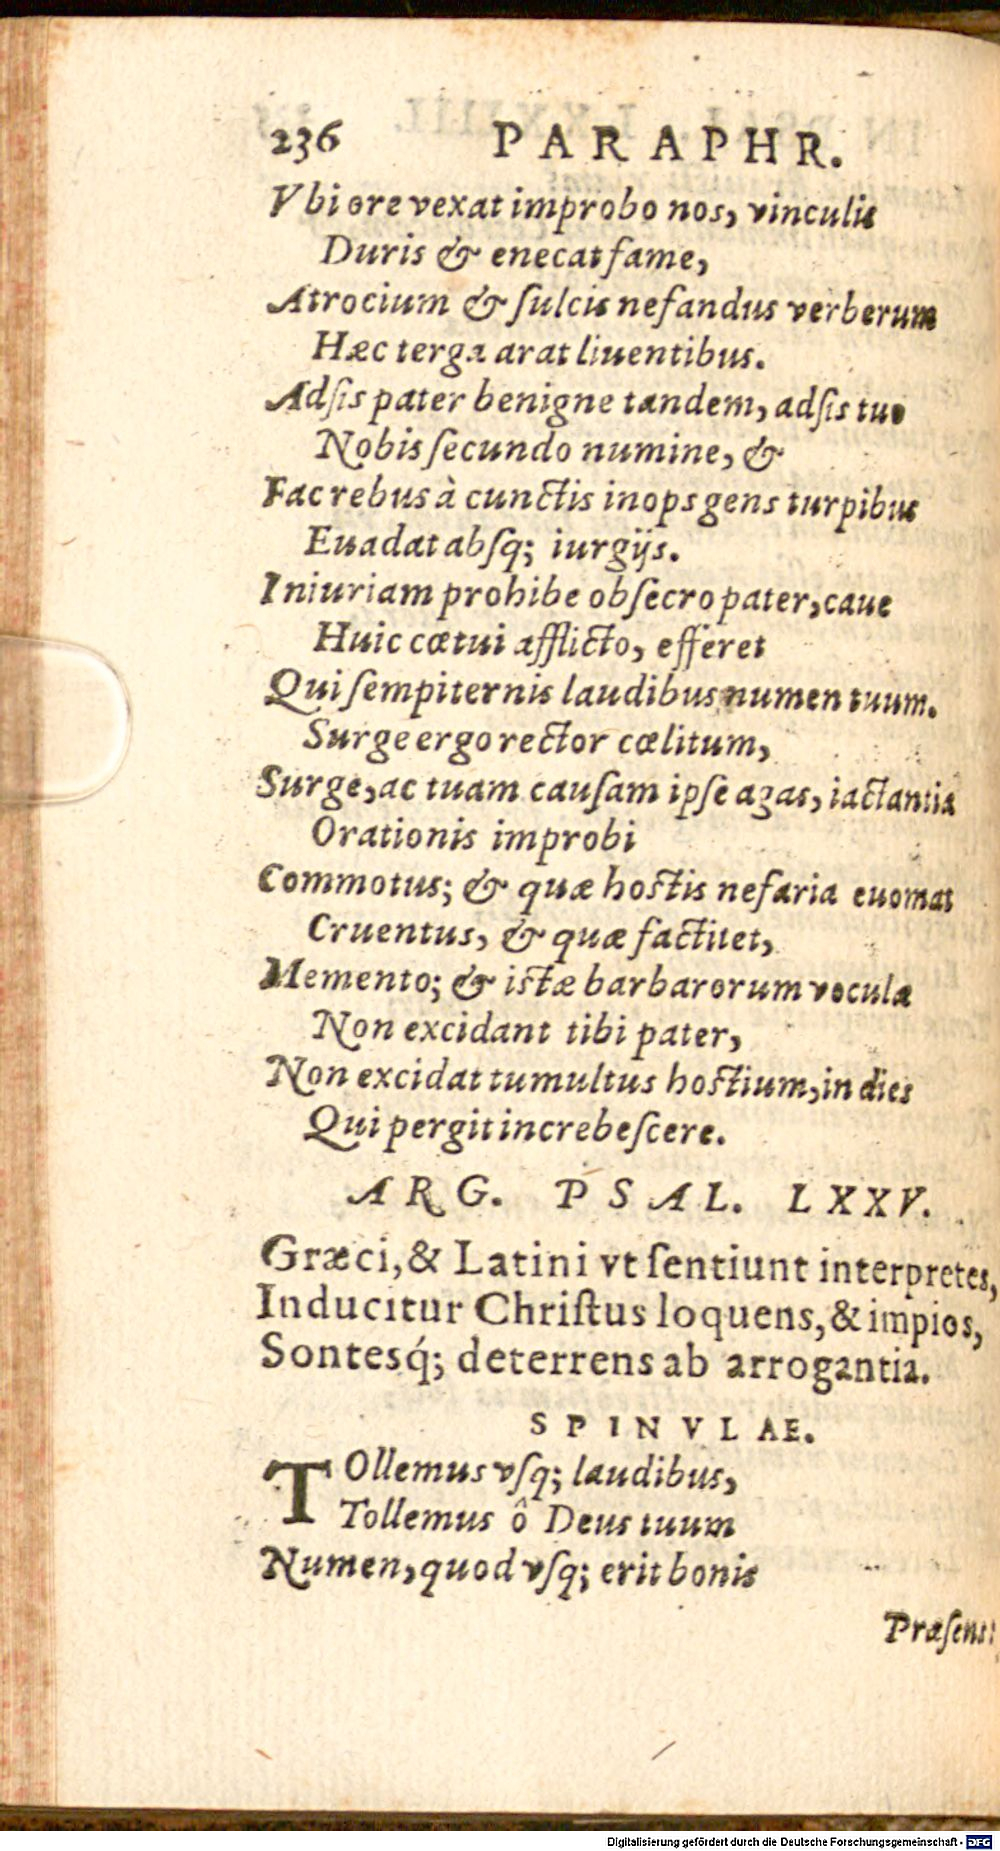 236 PARAPHR.
Vbi ore vexat improbo nos, vinculis
Duris & enecat fame,
Atrocium & ſulcis nefandus verberum
Hæc terga arat liuentibus.
Adſis pater benigne tandem, adſis tuo
Nobis ſecundo numine, &
Fac rebus à cunctis inops gens turpibus
Euadat abſq; iurgijs.
Iniuriam prohibe obſecro pater, caue
Huic cœtui afflicto, efferet
Qui ſempiternis laudibus numen tuum.
Surge ergo rector cœlitum,
Surge, ac tuam cauſam ipſe agas, iactantia
Orationis improbi
Commotus; & quæ hostis nefaria euomat
Cruentus, & quæ factitet,
Memento; & istæ barbarorum voculæ
Non excidant tibi pater,
Non excidat tumultus hostium, in dies
Qui pergit increbeſcere.
ARG. PSAL. LXXV.
Græci, & Latini vt ſentiunt interpretes,
Inducitur Chriſtus loquens, & impios,
Sontesq́; deterrens ab arrogantia.
SPINVLAE.
TOllemus vſq; laudibus,
Tollemus ô Deus tuum
Numen, quod vſq; erit bonis
Præſens:
Digitalisierung gefördert durch die Deutsche Forschungsgemeinschaft - DFG